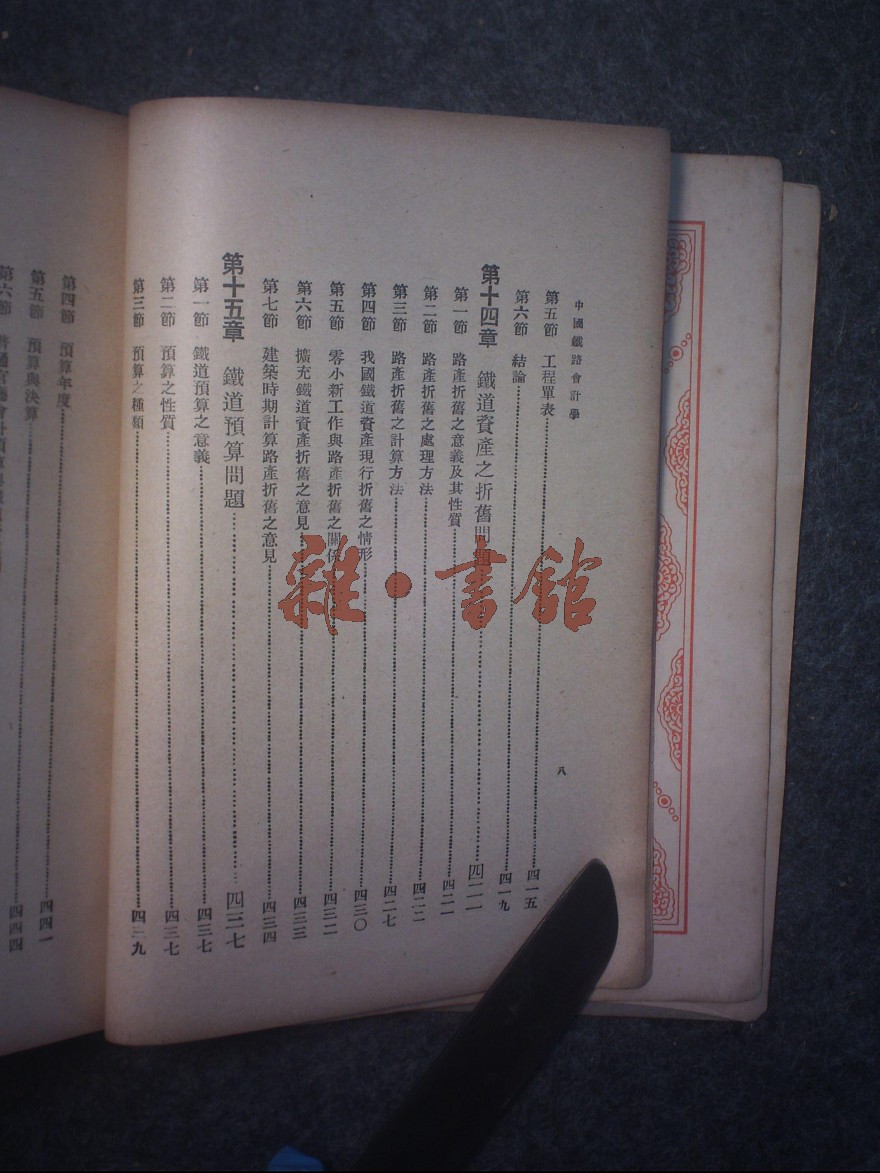 中國鐵路會計學
八
第五節 工程單表 四一五
第六節 結論 四一九
第十四章 鐵道資產之折舊問題 四二一
第一節 路產折舊之意義及其性質 四二一
第二節 路產折舊之處理方法 四二二
第三節 路產折舊之計算方法 四二七
第四節 我國鐵道資產現行折舊之情形 四三〇
第五節 零小新工作與路產折舊之關係 四三二
第六節 擴充鐵道資產折舊之意見 四三三
第七節 建築時期計算路產折舊之意見 四三四
第十五章 鐵道預算問題 四三七
第一節 鐵道預算之意義 四三七
第二節 預算之性質 四三七
第三節 預算之種類 四三九
第四節 預算年度
第五節 預算與決算 四四一
第六節 普通官廳會計預算與 四四四
雜·書館